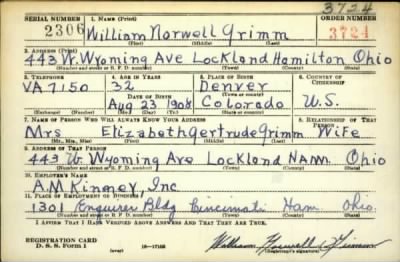 3724
SERIAL NUMBER 1. NAME (Print) ORDER NUMBER
2306 William Norwell Grimm 3724
(First) (Middle) (Last)
2. ADDRESS (Print)
443 W. Wyoming Ave Lockland Hamilton Ohio
(Number and street or R. F. D. number) (Town) (County) (State)
3. TELEPHONE 4. AGE IN YEARS 5. PLACE OF BIRTH 6. COUNTRY OF CITIZENSHIP
VA 7150 32 Denver
DATE OF BIRTH
Aug 23 1908 Colorado U.S.
(Mo.) (Day) (Yr.) (State or country)
7. NAME OF PERSON WHO WILL ALWAYS KNOW YOUR ADDRESS 8. RELATIONSHIP OF THAT PERSON
Mrs Elizabeth Gertrude Grimm Wife
(Mr., Mrs., Miss) (First) (Middle) (Last)
9. ADDRESS OF THAT PERSON
443 W. Wyoming Ave Lockland HAM. Ohio
(Number and street or R. F. D. number) (Town) (County) (State)
10. EMPLOYER'S NAME
A.M. Kinney, Inc
11. PLACE OF EMPLOYMENT OR BUSINESS
1301 Enquirer Bldg Cincinnati Ham Ohio.
(Number and street or R. F. D. number) (Town) (County) (State)
I AFFIRM THAT I HAVE VERIFIED ABOVE ANSWERS AND THAT THEY ARE TRUE.
REGISTRATION CARD
D. S. S. Form 1 (over) 16-17105 William Norwell Grimm
(Registrant's signature)